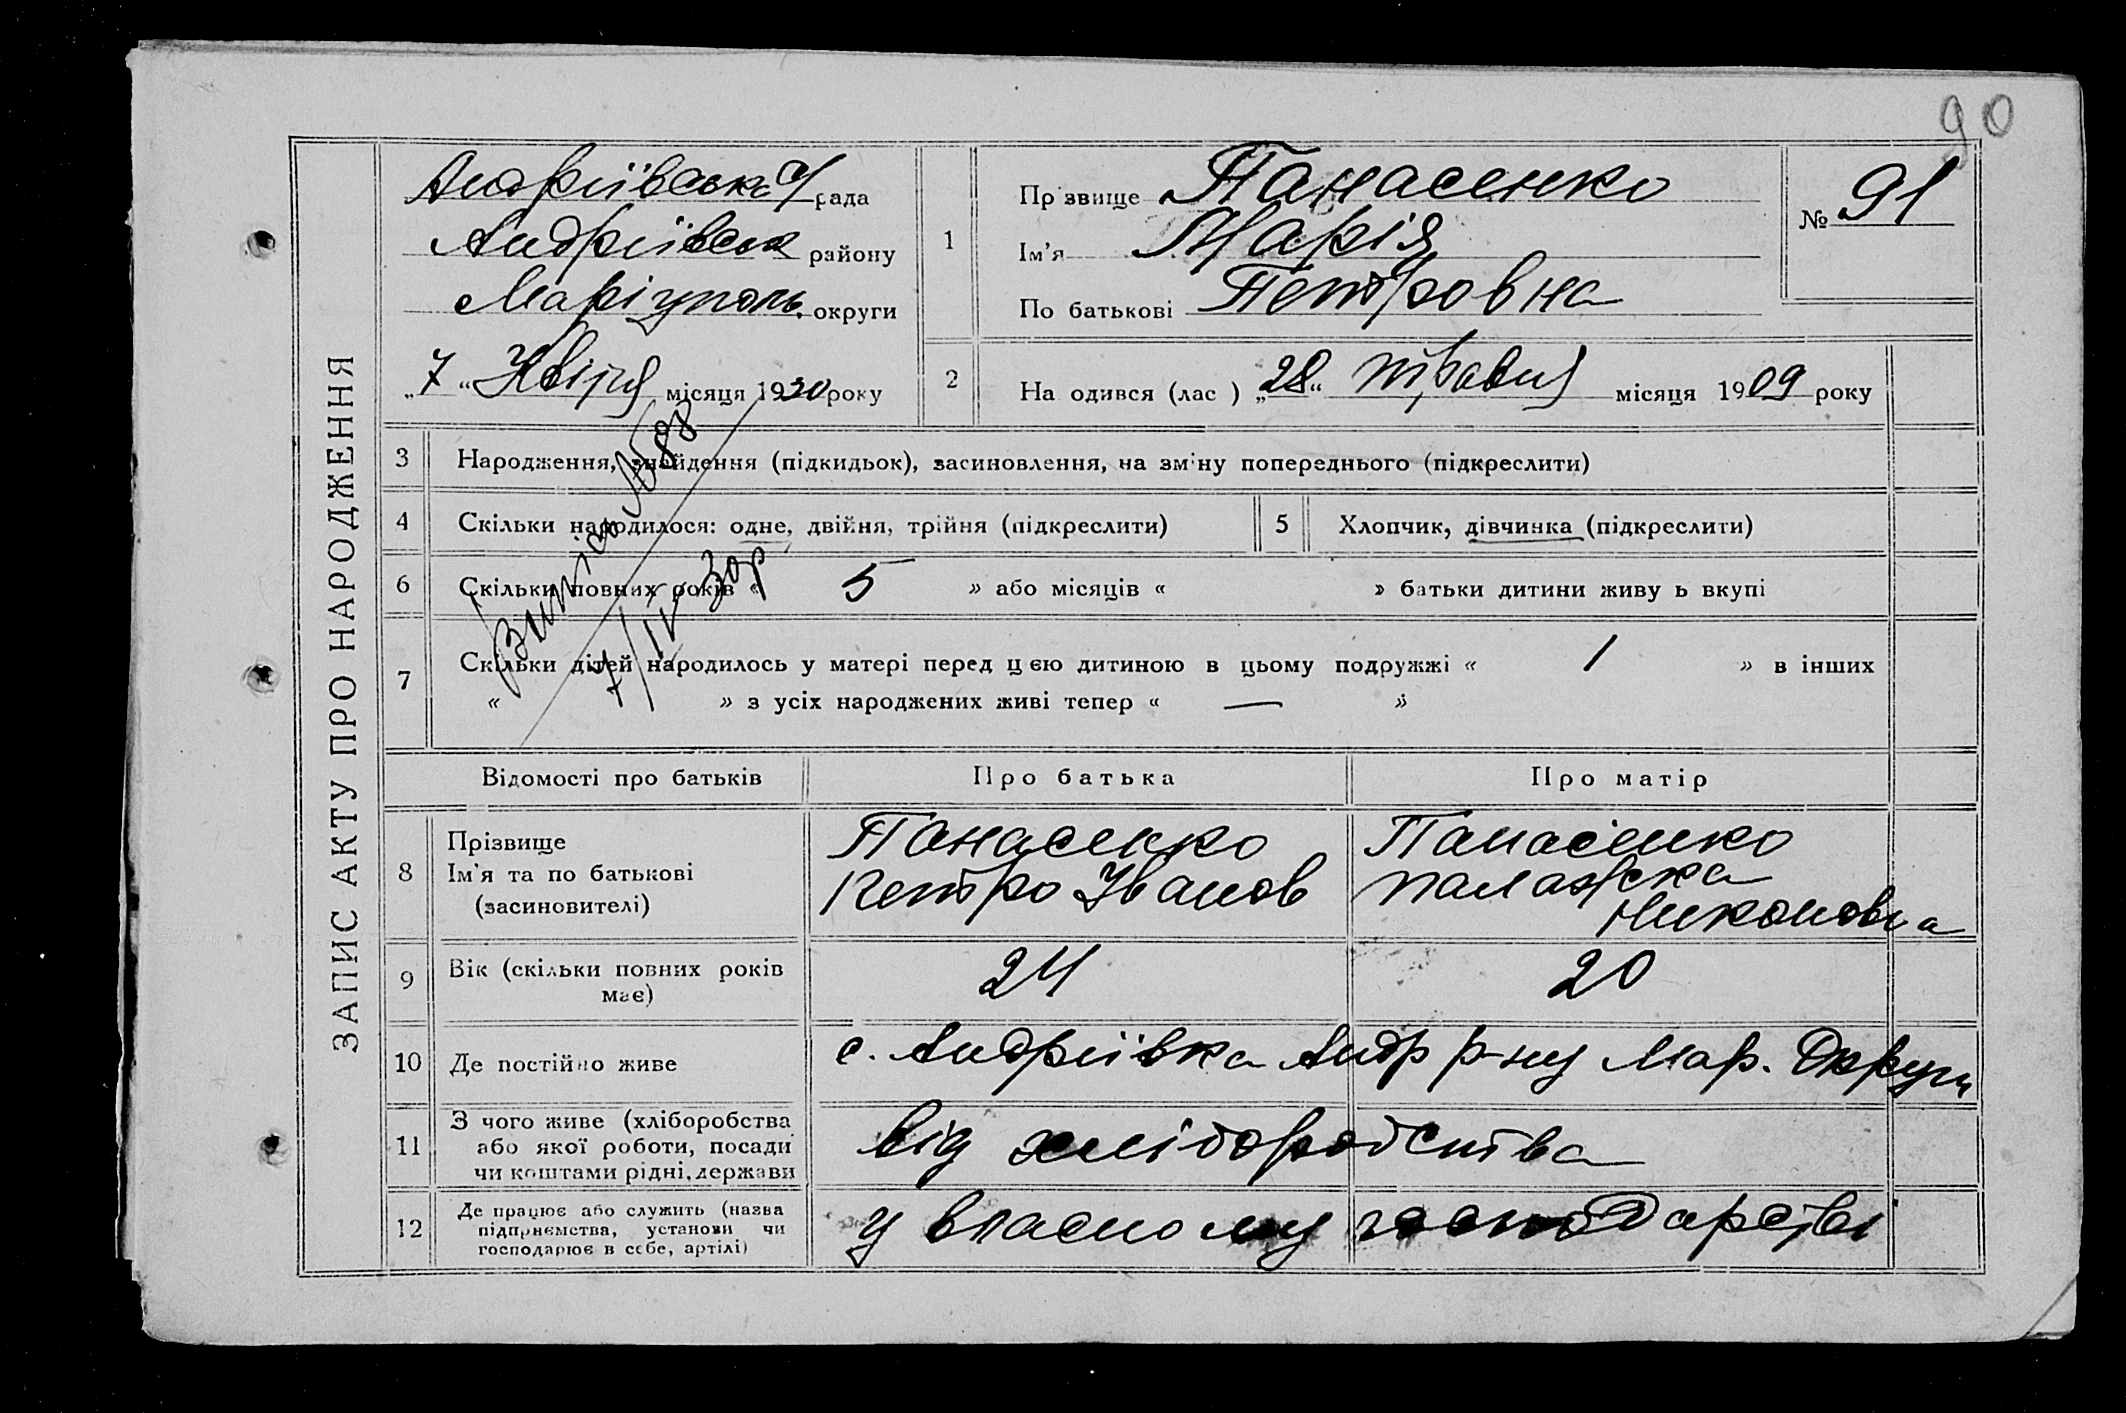 90
ЗАПИС АКТУ ПРО НАРОДЖЕННЯ
Андріївська с/рада
Андріївськ району
Маріуполь. округи
„7“ Квітня місяця 1930 року
1
Прізвище Панасенко
Ім'я Марія
По батькові Петровна
№ 91
2 На одився (лас ) „28“ травня місяця 1909 року
3 Народження, знайдення (підкидьок), засиновлення, на зміну попереднього (підкреслити)
4 Скільки народилося: одне, двійня, трійня (підкреслити)
5 Хлопчик, дівчинка (підкреслити)
6 Скільки повних років « 5 » або місяців « » батьки дитини живу ь вкупі
7 Скільки дітей народилось у матері перед цією дитиною в цьому подружжі « 1 » в інших
« » з усіх народжених живі тепер « — »
Випись №88
7/IV 30р
Відомості про батьків Про батька Про матір
8 Прізвище
Ім'я та по батькові
(засиновителі)
Панасенко
Петро Іванов
Панасенко
Палажка
Никоновна
9 Вік (скільки повних років
має)
24 20
10 Де постійно живе с. Андріївка Андр р-ну Мар. Округи
11 З чого живе (хліборобства
або якої роботи, посади
чи коштами рідні, держави
від хліборобства
12 Де працює або служить (назва
підприємства, установи чи
господарює в себе, артілі)
у власному господарстві